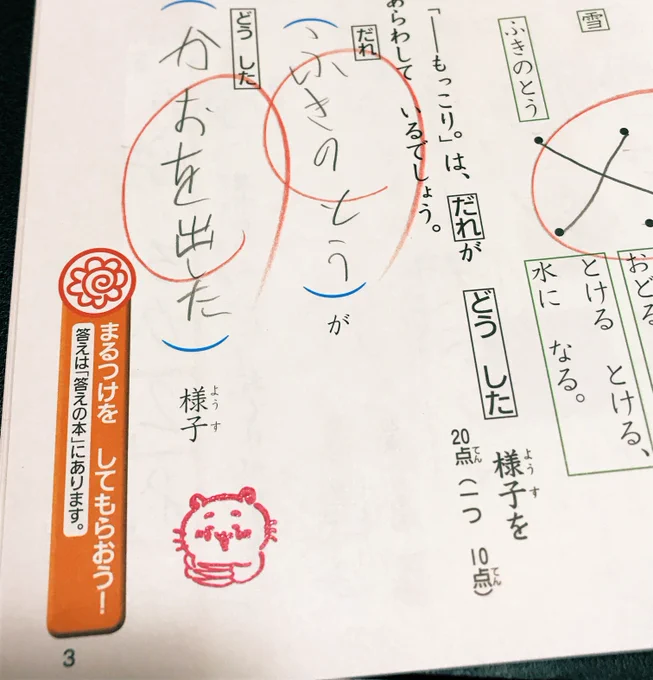 雪
ふきのとう
おどる
とける とける、
水に なる。
「――もっこり。」は、だれが どう した様子を
ようす
あらわして いるでしょう。
20点(一つ 10点)
てん
てん
だれ
(ふきのとう)が
どう した
(かおを出した)様子
ようす
まるつけを してもらおう!
答えは「答えの本」にあります。
3